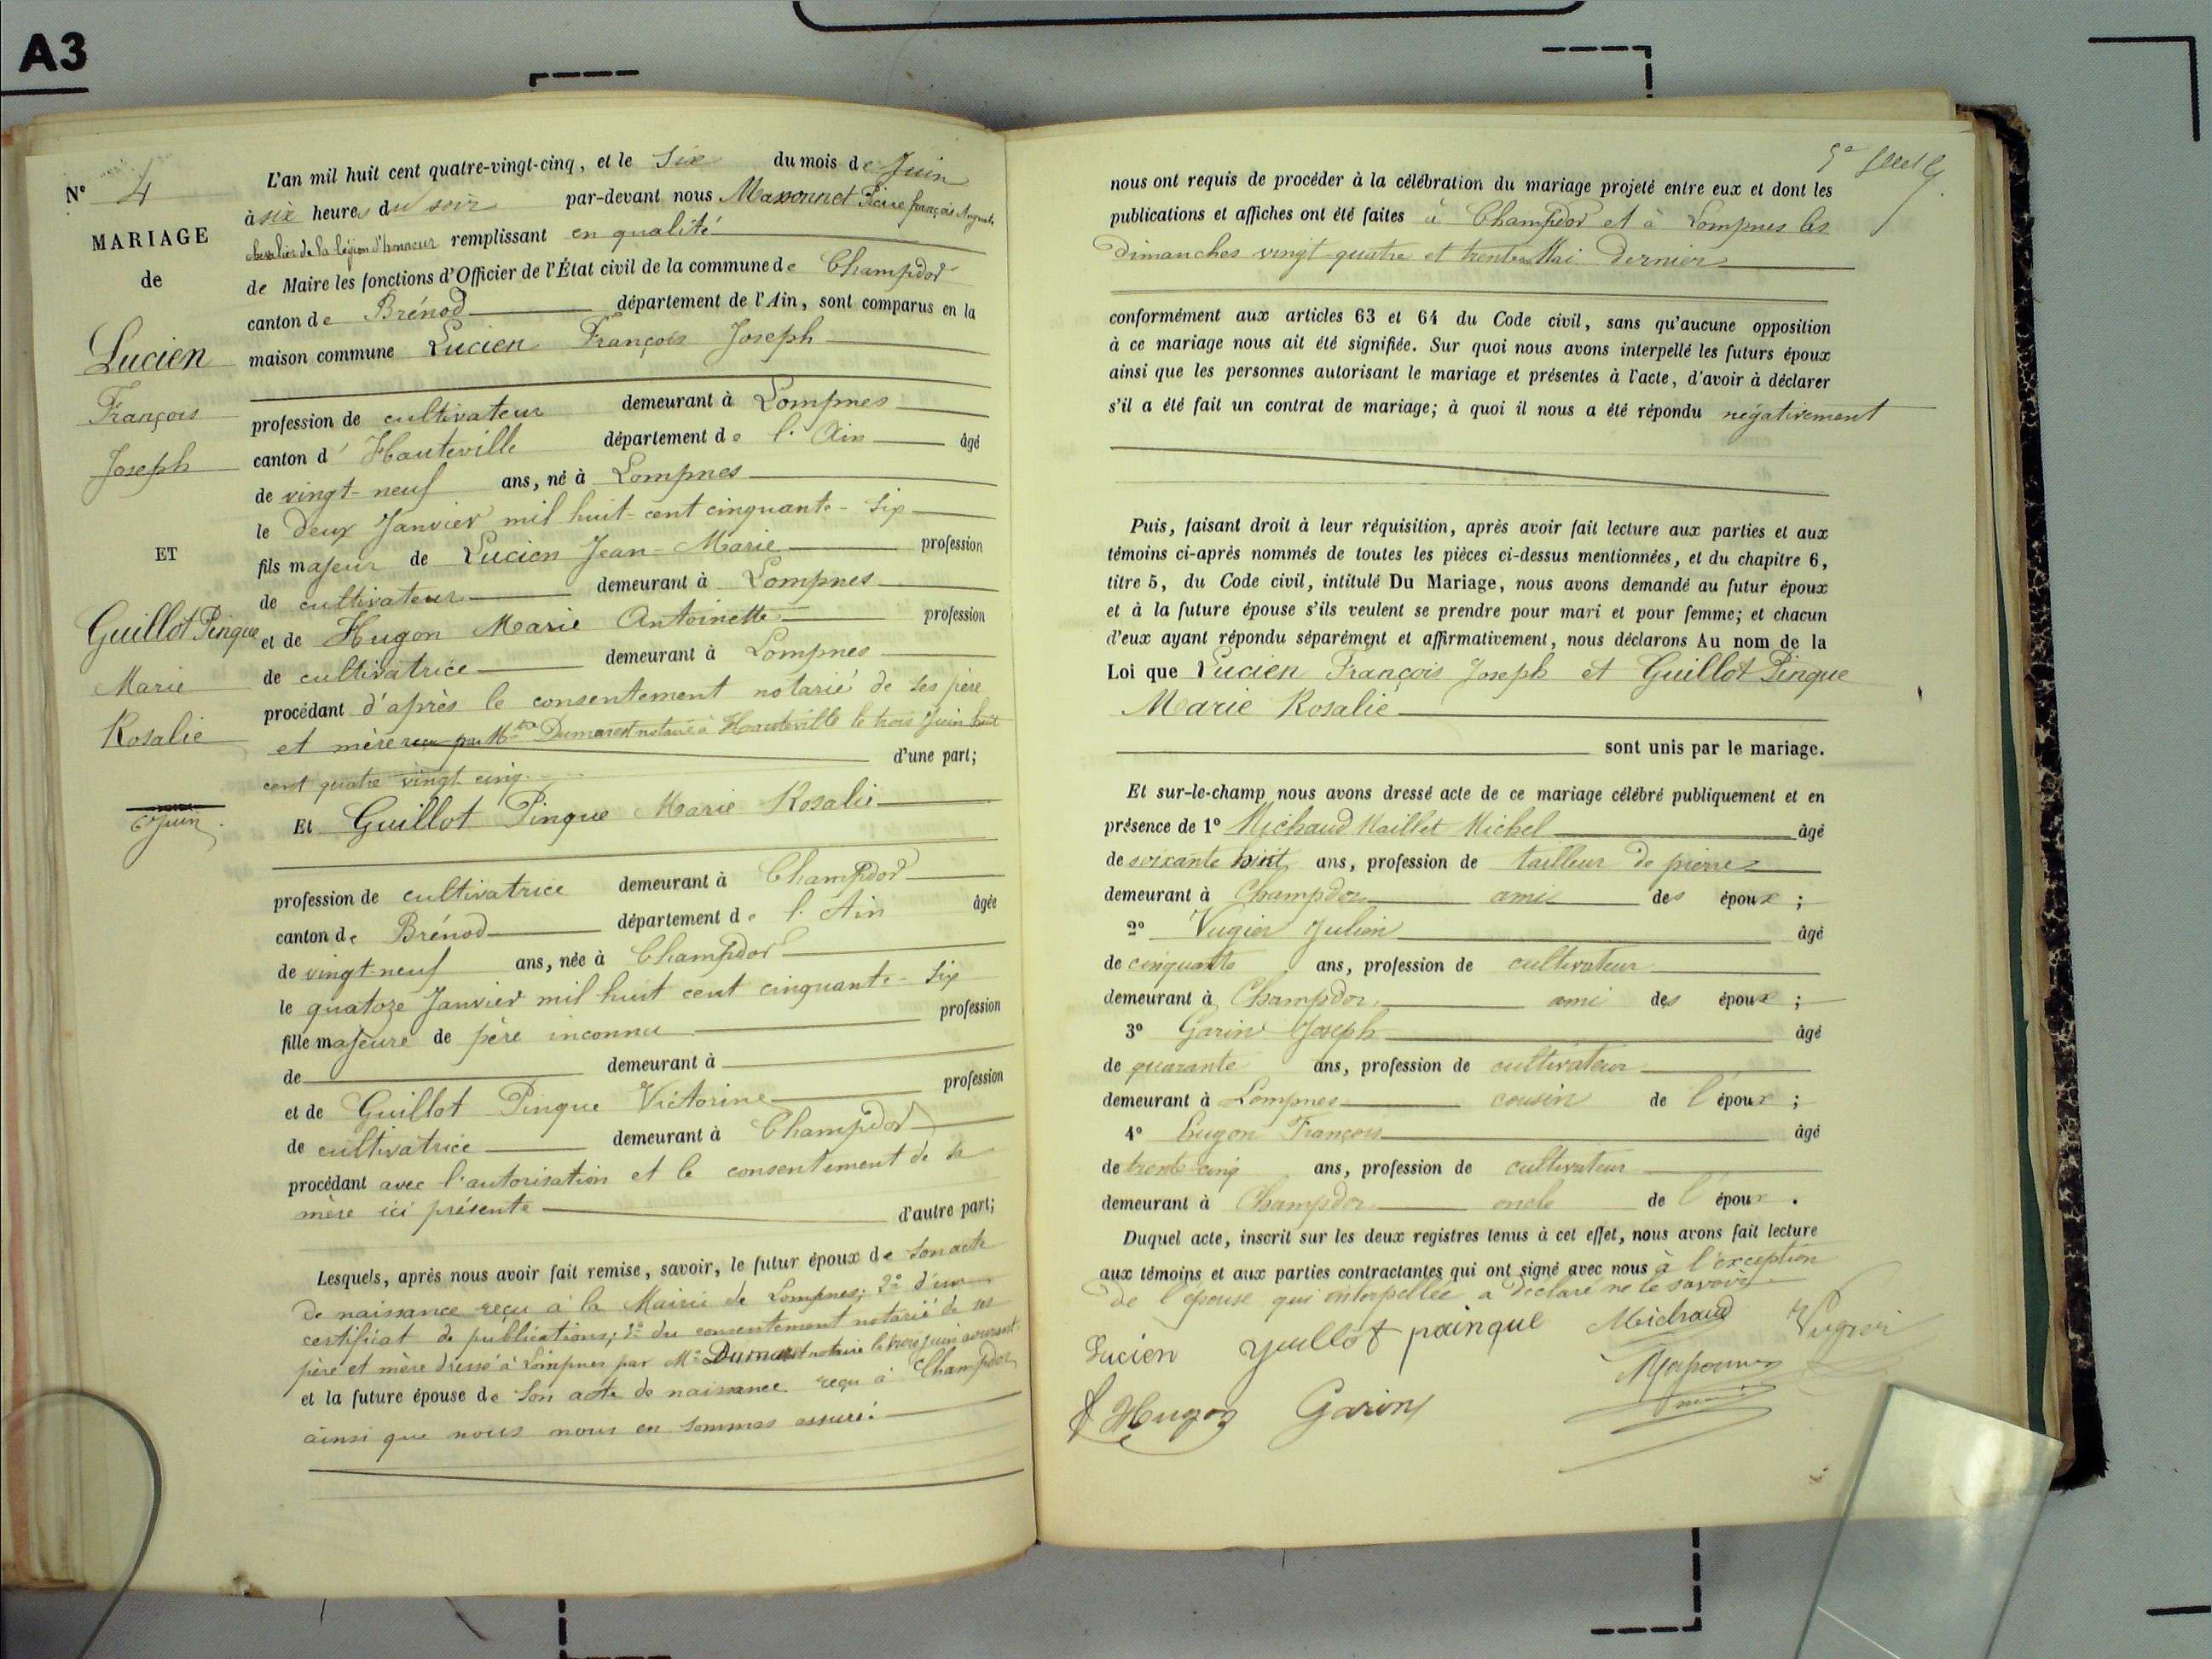 A3
N° 4
MARIAGE
de
Lucien
François
Joseph
ET
Guillot Pinque
Marie
Rosalie
6 Juin
L'an mil huit cent quatre-vingt-cinq, et le Six du mois de Juin
à six heures du soir par-devant nous Massonnet Pierre françois Auguste
chevalier de la légion d'honneur remplissant en qualité
de Maire les fonctions d'Officier de l'État civil de la commune de Champdor
canton de Brénod département de l'Ain, sont comparus en la
maison commune Lucien François Joseph
profession de cultivateur demeurant à Lompnes
canton d'Hauteville département de l'Ain âgé
de vingt-neuf ans, né à Lompnes
le deux Janvier mil huit-cent cinquante-six
fils majeur de Lucien Jean-Marie profession
de cultivateur demeurant à Lompnes
et de Hugon Marie Antoinette profession
de cultivatrice demeurant à Lompnes
procédant d'après le consentement notarié de ses père
et mère reçu par Me Dumarest notaire à Hauteville le trois Juin huit
d'une part;
cent quatre vingt cinq.
Et Guillot Pinque Marie Rosalie
profession de cultivatrice demeurant à Champdor
canton de Brénod département de l'Ain âgée
de vingt-neuf ans, née à Champdor
le quatoze Janvier mil huit cent cinquante-six
fille majeure de père inconnu profession
de demeurant à
et de Guillot Pinque Victorine profession
de cultivatrice demeurant à Champdor
procédant avec l'autorisation et le consentement de sa
mère ici présente d'autre part;
Lesquels, après nous avoir fait remise, savoir, le futur époux de son acte
de naissance reçu à la Mairie de Lompnes; 2° d'un
certificat de publications; 3° du consentement notarié de ses
père et mère dressé à Lompnes par Me Dumarest notaire le trois juin courant.
et la future épouse de son acte de naissance reçu à Champdor
ainsi que nous nous en sommes assuré.
nous ont requis de procéder à la célébration du mariage projeté entre eux et dont les
publications et affiches ont été faites à Champdor et à Lompnes les
dimanches vingt-quatre et trente Mai dernier
conformément aux articles 63 et 64 du Code civil, sans qu'aucune opposition
à ce mariage nous ait été signifiée. Sur quoi nous avons interpellé les futurs époux
ainsi que les personnes autorisant le mariage et présentes à l'acte, d'avoir à déclarer
s'il a été fait un contrat de mariage; à quoi il nous a été répondu négativement
Puis, faisant droit à leur réquisition, après avoir fait lecture aux parties et aux
témoins ci-après nommés de toutes les pièces ci-dessus mentionnées, et du chapitre 6,
titre 5, du Code civil, intitulé Du Mariage, nous avons demandé au futur époux
et à la future épouse s'ils veulent se prendre pour mari et pour femme; et chacun
d'eux ayant répondu séparément et affirmativement, nous déclarons Au nom de la
Loi que Lucien François Joseph et Guillot Pinque
Marie Rosalie
sont unis par le mariage.
Et sur-le-champ nous avons dressé acte de ce mariage célébré publiquement et en
présence de 1° Michaud Maillet Michel âgé
de soixante huit ans, profession de tailleur de pierres
demeurant à Champdor ami des époux ;
2° Vugier Julien âgé
de cinquante ans, profession de cultivateur
demeurant à Champdor ami des époux ;
3° Garin Joseph âgé
de quarante ans, profession de cultivateur
demeurant à Lompnes cousin de l'époux ;
4° Hugon François âgé
de trente cinq ans, profession de cultivateur
demeurant à Champdor oncle de l'époux .
Duquel acte, inscrit sur les deux registres tenus à cet effet, nous avons fait lecture
aux témoins et aux parties contractantes qui ont signé avec nous à l'exception
de l'épouse qui interpellée a déclaré ne le savoir
Lucien guillot painque Michaud Vugier
f Hugon Garin